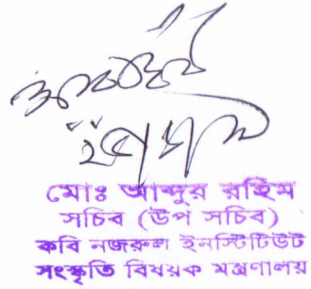 মোঃ আব্দুর রহিম
সচিব (উপ সচিব)
কবি নজরুল ইনস্টিটিউট
সংস্কৃতি বিষয়ক মন্ত্রণালয়